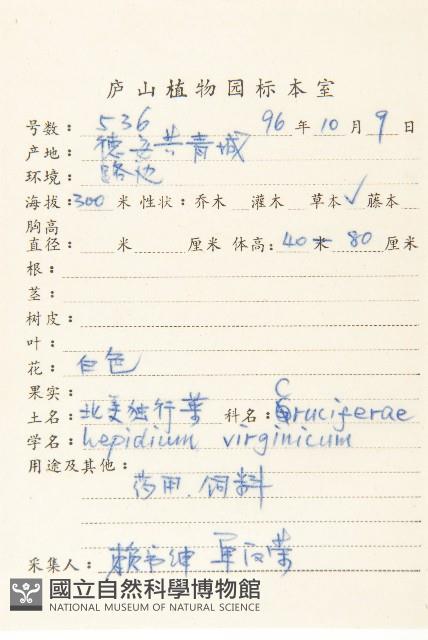 庐山植物园标本室
号数: 536 96年10月9日
产地: 德安共青城
环境: 路边
海拔: 300米 性状: 乔木 灌木 草本✓ 藤本
胸高
直径: 米 厘米 体高: 40米 80厘米
根:
茎:
树皮:
叶:
花: 白色
果实:
土名: 北美独行菜 科名: Cruciferae
学名: Lepidium virginicum
用途及其他:
药用. 饲料
采集人: 赖书绅
國立自然科學博物館
NATIONAL MUSEUM OF NATURAL SCIENCE